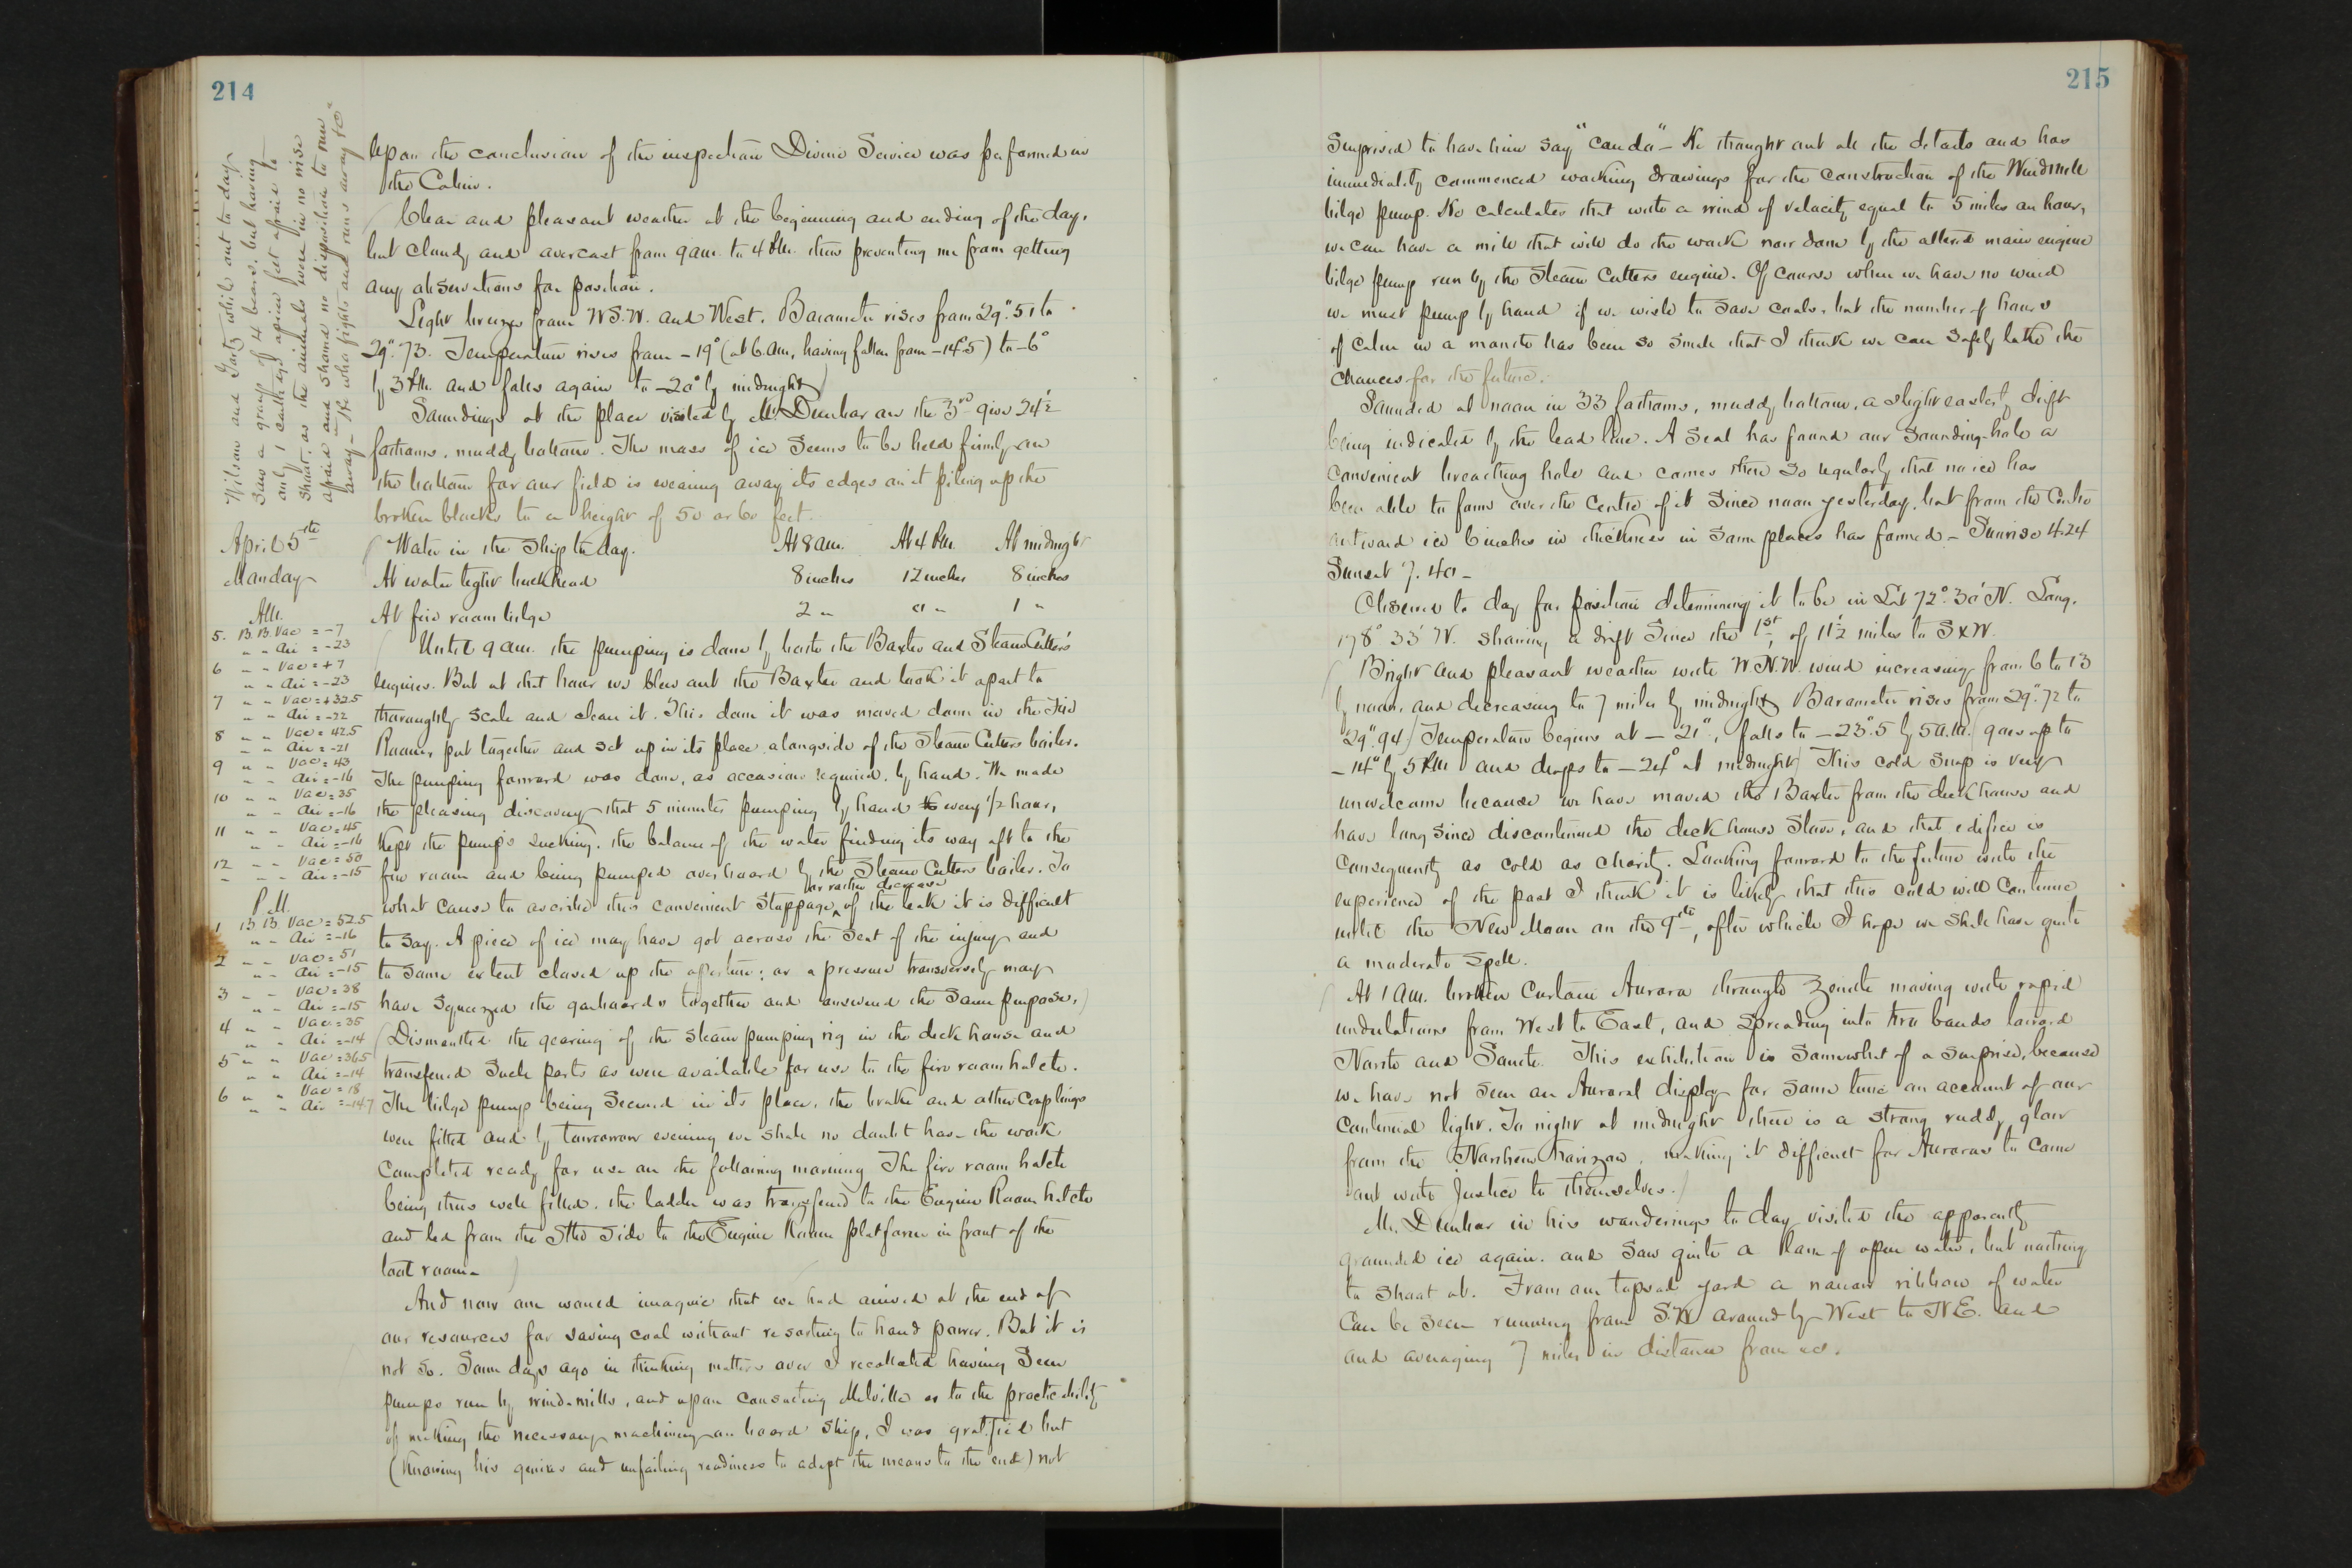 214
Wilson and Goetz while out to day
saw a group of 4 bears, but having
only 1 cartridge apiece felt afraid to
shoot, as the animals were in no wise
afraid and showed no disposition to run
away — "He who fights and runs away &c"
Upon the conclusion of the inspection Divine Service was performed in
the Cabin.
Clear and pleasant weather at the beginning and ending of the day,
but cloudy and overcast from 9 am. to 4 P.M. thus preventing me from getting
any observations for position.
Light breezes from W S.W. and West. Barometer rises from 29".51 to
29".73. Temperature rises from -19° (at 6. am, having fallen from -14°.5) to -6°
by 3 P.M. and falls again to -20° by midnight
Soundings at the place visited by Mr. Dunbar on the 3rd give 24½
fathoms, muddy bottom. The mass of ice seems to be held firmly on
the bottom for our field is wearing away its edges on it piling up the
broken blocks to a height of 50 or 60 feet.
April 5th
Monday
Water in the ship to day. At 8 am. At 4 P.M. At midnight
At water tight bulkhead 8 inches 12 inches 8 inches
At fire room bilge 2 " 0 " 1 "
A.M.
5. B.B. Vac = -7
" " Air = -23
6 " " Vac = +7
" " Air = -23
7 " " Vac = +32.5
" " Air = -22
8 " " Vac = 42.5
" " Air = -21
9 " " Vac = 43
" " Air = -16
10 " " Vac = 35
" " Air = -16
11 " " Vac = 45
" " Air = -16
12 " " Vac = 50
" " Air = -15
P.M.
1 B B Vac = 52.5
" " Air = -16
2 " " Vac = 51
" " Air = -15
3 " " Vac = 38
" " Air = -15
4 " " Vac = 35
" " Air = -14
5 " " Vac = 36.5
" " Air = -14
6 " " Vac = 18
" " Air = -14.7
Until 9 am. the pumping is done by both the Baxter and Steam Cutter's
engines. But at that hour we blew out the Baxter and took it apart to
thoroughly scale and clean it. This done it was moved down in the Fire
Room, put together and set up in its place alongside of the Steam Cutters boiler.
The pumping forward was done, as occasion required, by hand. We made
the pleasing discovery that 5 minutes pumping by hand every 1/2 hour,
Kept the pumps sucking, the balance of the water finding its way aft to the
fire room and being pumped overboard by the Steam Cutters boiler. To
what cause to ascribe this convenient stoppage, or rather decrease of the leak it is difficult
to say. A piece of ice may have got across the seat of the injury and
to some extent closed up the aperture; or a pressure transversely may
have squeezed the garboards together and answered the same purpose.)
(Dismantled the gearing of the steam pumping rig in the deck house and
transferred such parts as were available for use to the fire room hatch.
The bilge pump being secured in its place, the brake and other couplings
were fitted and by tomorrow evening we shall no doubt have the work
completed ready for use on the following morning The fire room hatch
being thus well filled, the ladder was transferred to the Engine Room hatch
and led from the Stbd side to the Engine Room platform in front of the
boat room.
And now one would imagine that we had arrived at the end of
our resources for saving coal without resorting to hand power. But it is
not so. Some days ago in thinking matters over I recollected having seen
pumps run by wind-mills, and upon consulting Melville as to the practicability
of making the necessary machinery on board ship, I was gratified but
(Knowing his genius and unfailing readiness to adapt the means to the end) not
215
surprised to have him say "can do" - He thought out all the details and has
immediately commenced working drawings for the construction of the Windmill
bilge pump. He calculates that with a wind of velocity equal to 5 miles an hour,
we can have a mill that will do the work now done by the altered main engine
bilge pump run by the Steam Cutters engine. Of course when we have no wind
we must pump by hand if we wish to save coals, but the number of hours
of calm in a month has been so small that I think we can safely take the
chances for the future.
Sounded at noon in 33 fathoms, muddy bottom, a slight easterly drift
being indicated by the lead line. A seal has found our sounding-hole a
convenient breathing hole and comes there so regularly that no ice has
been able to form over the centre of it since noon yesterday, but from the centre
outward ice 6 inches in thickness in some places has formed - Sunrise 4.24
Sunset 7.40 -
Observed to day for position determining it to be in Lat 72° 30' N. Long.
178° 33' W. showing a drift since the 1st, of 11½ miles to S x W.
Bright and pleasant weather with W.N.W. wind increasing from 6 to 13
by noon, and decreasing to 7 miles by midnight Barometer rises from 29".72 to
29".94) Temperature begins at -21°, falls to -23°.5 by 5 a.m. goes up to
-14° by 5 P.M and drops to -24° at midnight) This cold snap is very
unwelcome because we have moved the Baxter from the deck house and
have long since discontinued the deck house stove, and that edifice is
consequently as cold as charity. Looking forward to the future with the
experience of the past I think it is likely that this cold will continue
until the New Moon on the 9th, after which I hope we shall have quite
a moderate spell.
At 1 am. broken Curtain Aurora through Zenith moving with rapid
undulations from West to East, and spreading into two bands toward
North and South. This exhibition is somewhat of a surprise, because
we have not seen an Auroral display for some time on account of our
continual light. To night at midnight there is a strong ruddy glow
from the Northern horizon, making it difficult for Auroras to come
out with justice to themselves.)
Mr. Dunbar in his wanderings to day visited the apparently
grounded ice again, and saw quite a lane of open water, but nothing
to shoot at. From our topsail yard a narrow ribbon of water
can be seen running from S.W around by West to N.E. and
and averaging 7 miles in distance from us.